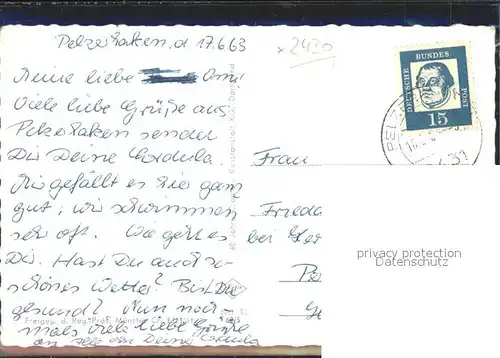 Pelzerhaken, d 17.6.63
x 2430
Meine liebe Omi
Viele liebe Grüße aus
Pelzerhaken sendet
Dir Deine Cordula.
Mir gefällt es hier ganz
gut, wir schwimmen
sehr oft. Wie geht es
Dir. Hast Du auch so
schönes Wetter? Bist Du
gesund? Nun noch
mals viele liebe Grüße
an alle von Deine Cordula
DEUTSCHE BUNDES POST
15
Frau
Frieda
bei
privacy protection
Datenschutz
Freigeg. d. Reg. Präs. Münster